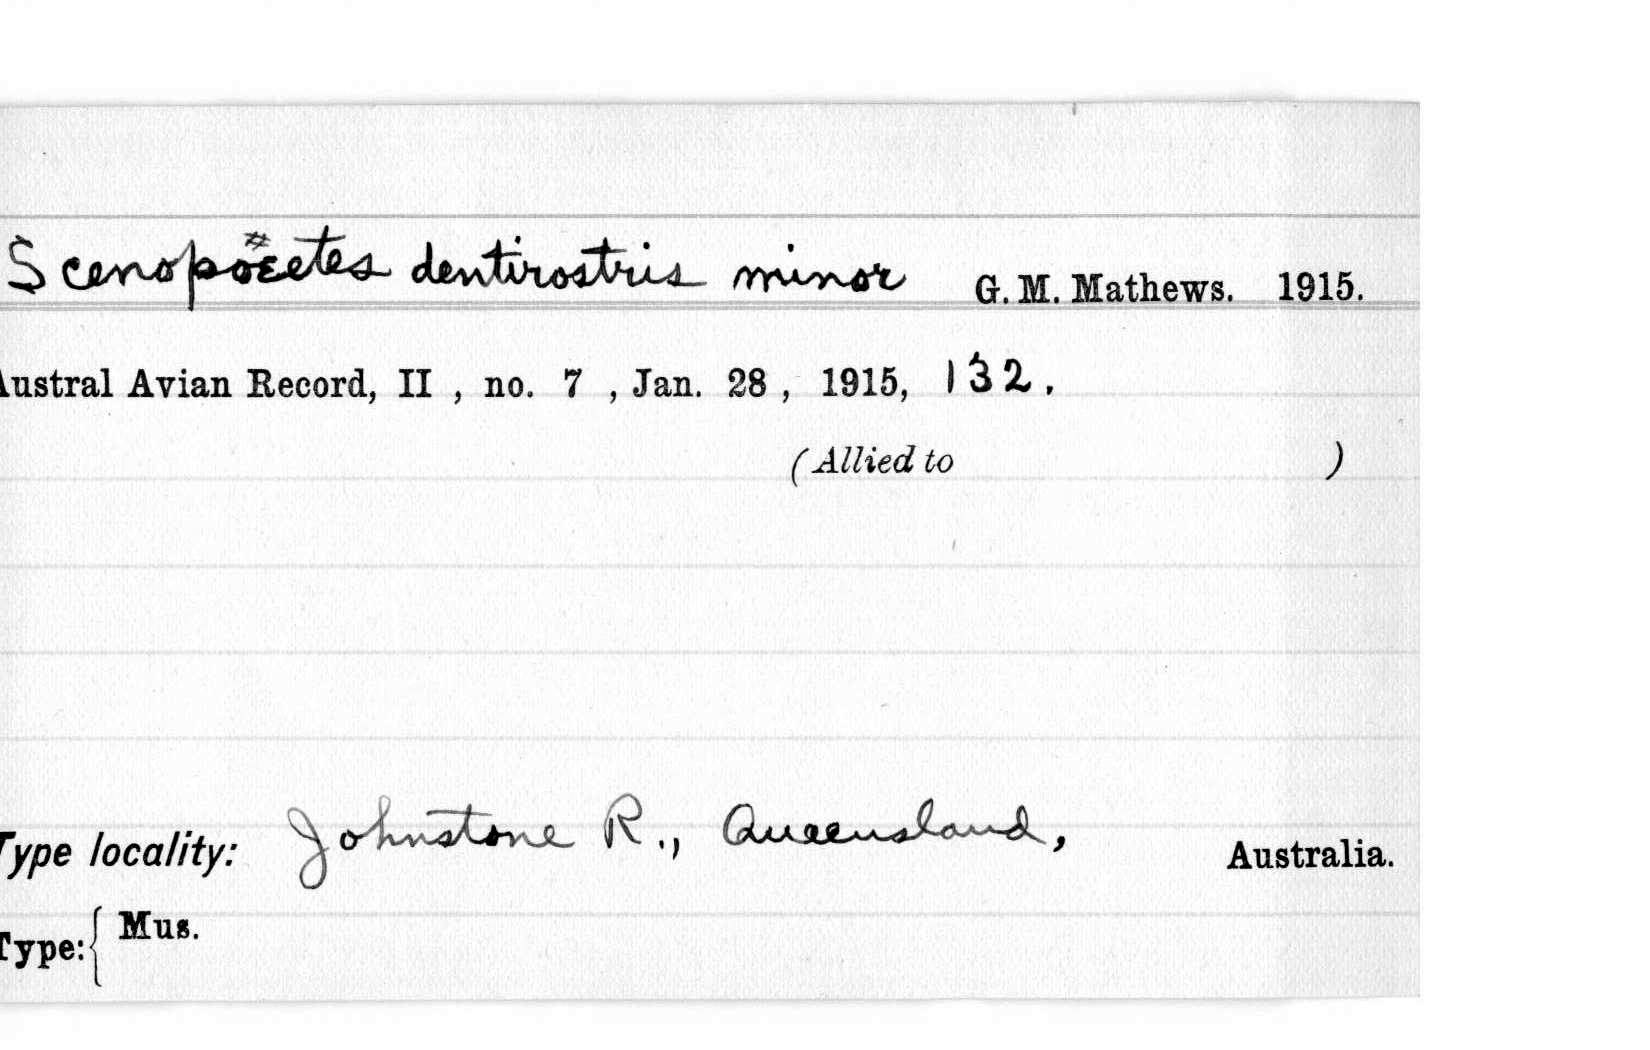 Scenopoeetes dentirostris minor G. M. Mathews. 1915.
Austral Avian Record, II, no. 7, Jan. 28, 1915, 132.
(Allied to )
Type locality: Johnstone R., Queensland, Australia.
Type: { Mus.